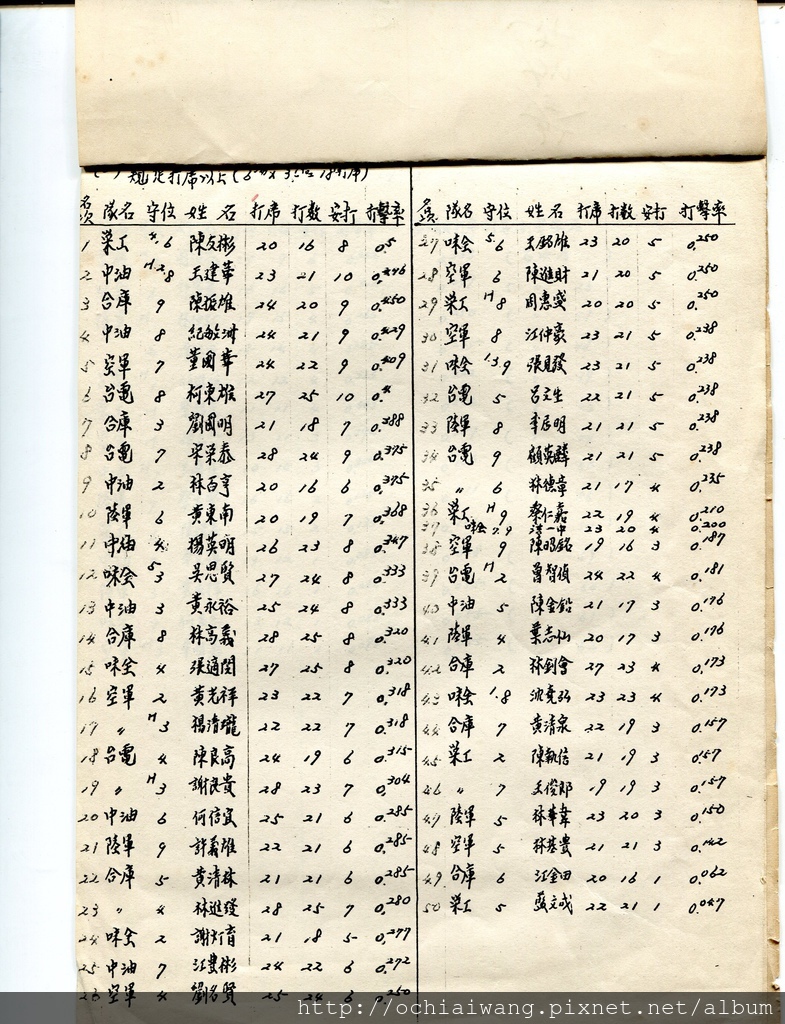 規定打席以上(
名次 隊名 守位 姓名 打席 打數 安打 打擊率
1 榮工 4.6 陳友彬 20 16 8 0.5
2 中油 H28 王建華 23 21 10 0.476
3 合庫 9 陳振雄 24 20 9 0.450
4 中油 8 紀敏洲 24 21 9 0.429
5 空軍 7 董國華 24 22 9 0.409
6 台電 8 柯東雄 27 25 10 0.4
7 合庫 3 劉國明 21 18 7 0.388
8 台電 7 宋榮泰 28 24 9 0.375
9 中油 2 林百亨 20 16 6 0.375
10 陸軍 6 黃東南 20 19 7 0.368
11 中油 4 楊英明 26 23 8 0.347
12 味全 53 吳思賢 27 24 8 0.333
13 中油 3 黃永裕 25 24 8 0.333
14 合庫 8 林高義 28 25 8 0.320
15 味全 4 張過閏 27 25 8 0.320
16 空軍 2 黃光祥 23 22 7 0.318
17 〃 H3 楊清瓏 22 22 7 0.318
18 台電 4 陳良高 24 19 6 0.315
19 〃 H3 謝良貴 28 23 7 0.304
20 中油 6 何信宜 25 21 6 0.285
21 陸軍 9 許義雄 22 21 6 0.285
22 合庫 5 黃清林 21 21 6 0.285
23 〃 4 林進發 28 25 7 0.280
24 味全 2 謝灯育 21 18 5 0.277
25 中油 7 江豊彬 24 22 6 0.272
26 空軍 4 劉名賢 25 24 6 0.250
名次 隊名 守位 姓名 打席 打數 安打 打擊率
27 味全 5.6 王銘雄 23 20 5 0.250
28 空軍 6 陳進財 21 20 5 0.250
29 榮工 H8 周惠盛 20 20 5 0.250
30 空軍 8 江仲豪 23 21 5 0.238
31 味全 139 張見發 23 21 5 0.238
32 台電 5 呂文生 22 21 5 0.238
33 陸軍 8 李居明 21 21 5 0.238
34 台電 9 顧英麟 21 21 5 0.238
35 〃 6 林德章 21 17 4 0.235
36 榮工 H9 蔡仁嘉 22 19 4 0.210
37 味全 7.9 洪一中 23 20 4 0.200
38 空軍 9 陳昭銘 19 16 3 0.187
39 台電 H2 曾智偵 24 22 4 0.181
40 中油 5 陳金鉛 21 17 3 0.176
41 陸軍 4 葉志仙 20 17 3 0.176
42 合庫 2 林釗會 27 23 4 0.173
43 味全 1.8 沈堯弘 23 23 4 0.173
44 合庫 7 黃清泉 22 19 3 0.157
45 榮工 2 陳執信 21 19 3 0.157
46 〃 7 王俊郎 19 19 3 0.157
47 陸軍 5 林華韋 23 20 3 0.150
48 空軍 5 林基豊 21 21 3 0.142
49 合庫 6 江金田 20 16 1 0.062
50 榮工 5 蘇文成 22 21 1 0.047
http://ochiaiwang.pixnet.net/album